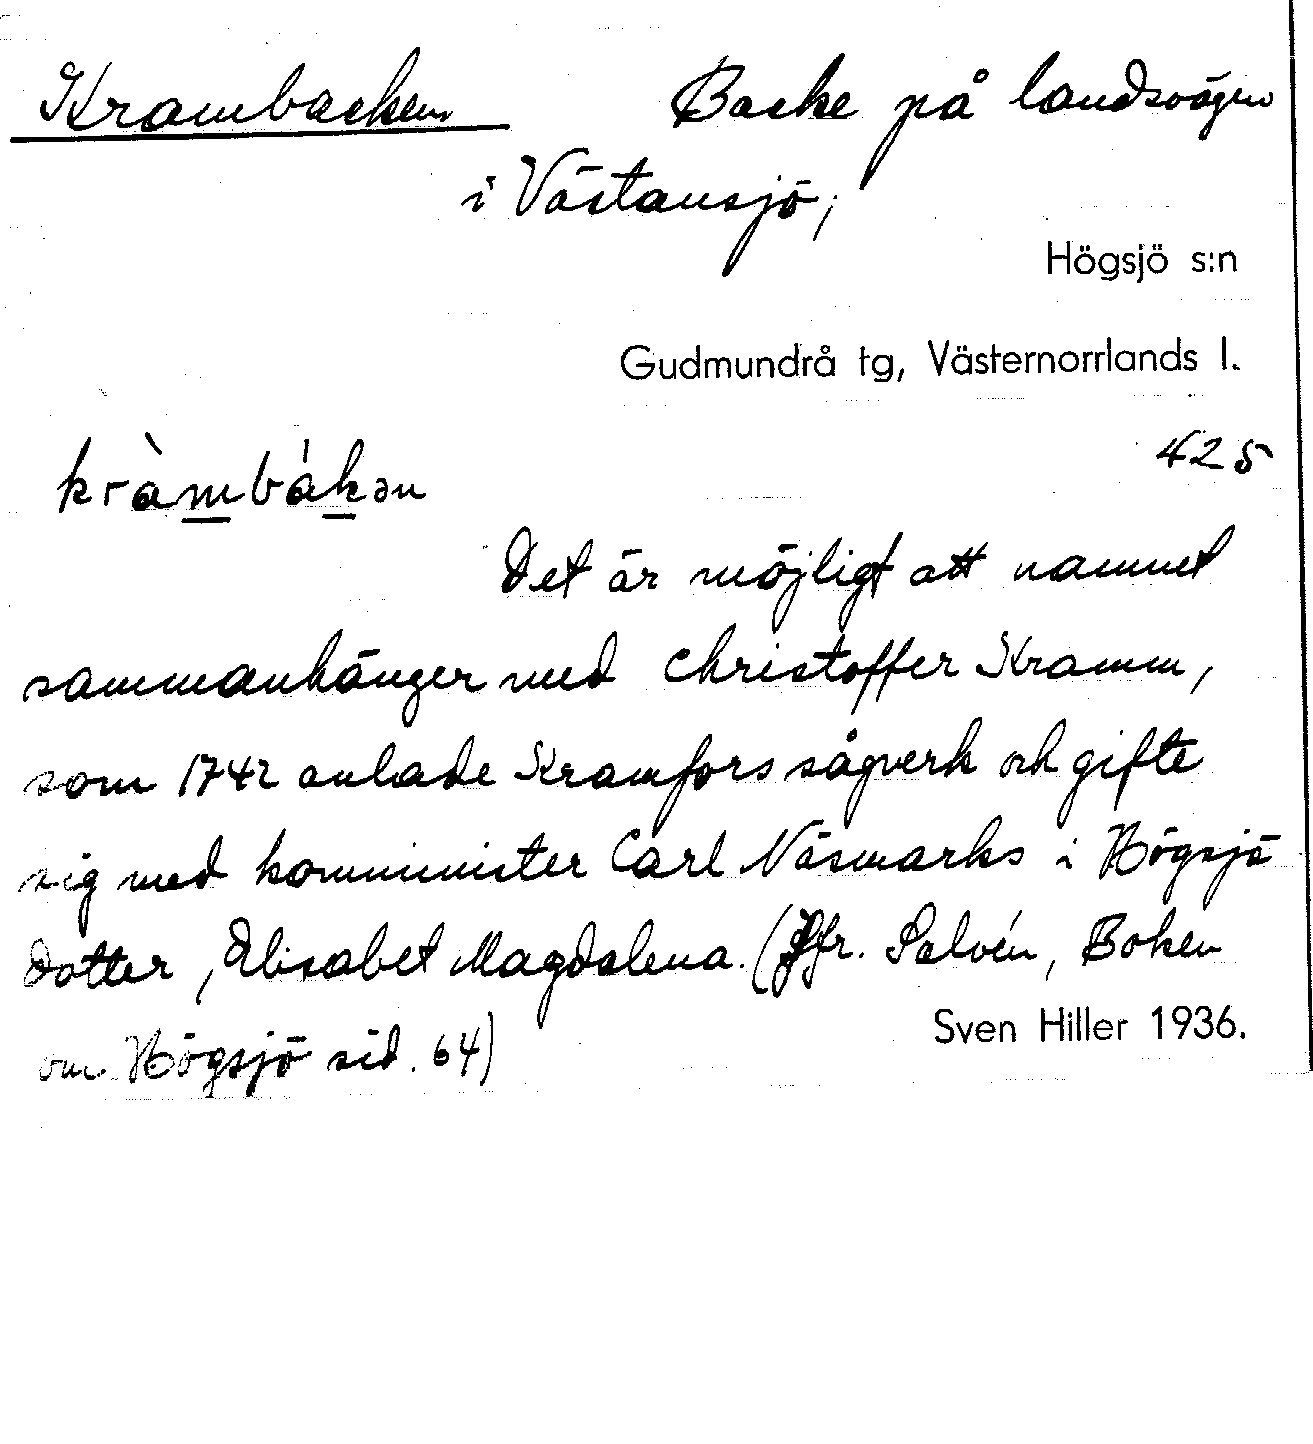 Krambacken Backe på landsvägen
i Västansjö,
Högsjö s:n
Gudmundrå tg, Västernorrlands l.
425
kràmbákən
Det är möjligt att namnet
sammanhänger med Christoffer Kramm,
som 1742 anlade Kramfors sågverk och gifte
sig med komminister Carl Näsmarks i Högsjö
dotter, Elisabet Magdalena. (Jfr. Salvén, Boken
om Högsjö sid. 64)
Sven Hiller 1936.